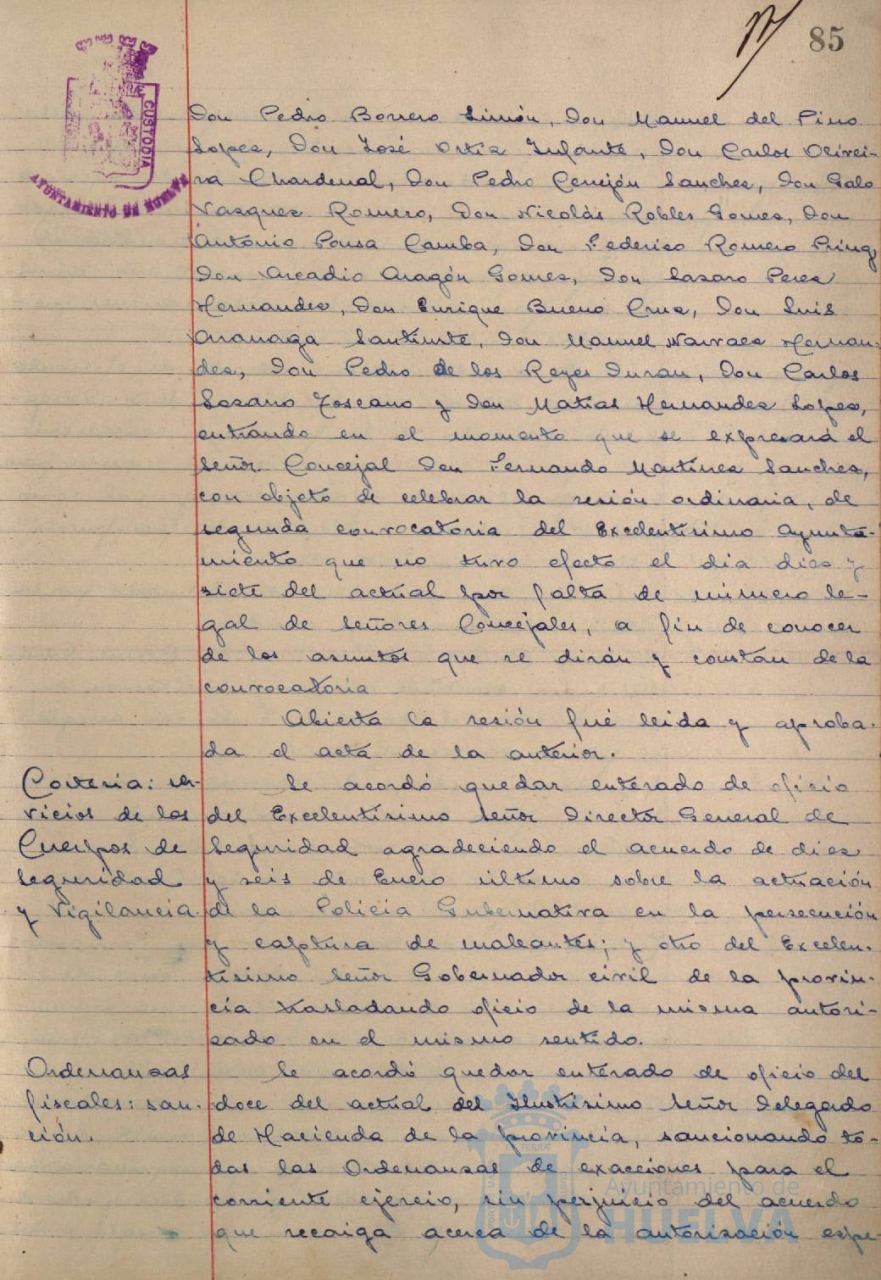 85
CUSTODIA
Don Pedro Borrero Limón, Don Manuel del Pino
Lopez, Don José Ortiz Infante, Don Carlos Olivei-
ra Chardenal, Don Pedro Cerrejón Sanchez, Don Galo
Vazquez Romero, Don Nicolás Robles Gomez, Don
António Pousa Camba, Don Federico Romero
Don Arcadio Aragón Gomez, Don Lazaro Perez
Hernandez, Don Enrique Bueno Cruz, Don Luis
Don Manuel Narvaez Hernan-
dez, Don Pedro de los Reyes Duran, Don Carlos
Lozano Toscano y Don Matias Hernandez Lopez,
entrando en el momento que se expresará el
Señor Concejal Don Fernando Martinez Sanchez,
con objeto de celebrar la sesión ordinaria, de
segunda convocatoria del Excelentisimo Ayunta-
miento que no tuvo efecto el dia diez y
siete del actual por falta de número le-
gal de Señores Concejales, a fin de conocer
de los asuntos que se dirán y constan de la
convocatoria
Abierta la sesión fué leida y aproba-
da el acta de la anterior.
Cortesia: ser-
vicios de los
Cuerpos de
Seguridad
y Vigilancia.
Se acordó quedar enterado de oficio
del Excelentisimo Señor Director General de
Seguridad agradeciendo el acuerdo de diez
y seis de Enero último sobre la actuación
de la Policia Gubernativa en la persecución
y captura de maleantes; y otro del Excelen-
tisimo Señor Gobernador civil de la provin-
cia trasladando oficio de la misma autori-
zado en el mismo sentido.
Ordenanzas
fiscales: san-
ción.
Se acordó quedar enterado de oficio del
doce del actual del Ilustrisimo Señor Delegado
de Hacienda de la provincia, sancionando to-
das las Ordenanzas de exacciones para el
corriente ejercio, sin perjuicio del acuerdo
que recaiga acerca de la autorización espe-
Ayuntamiento de
HUELVA